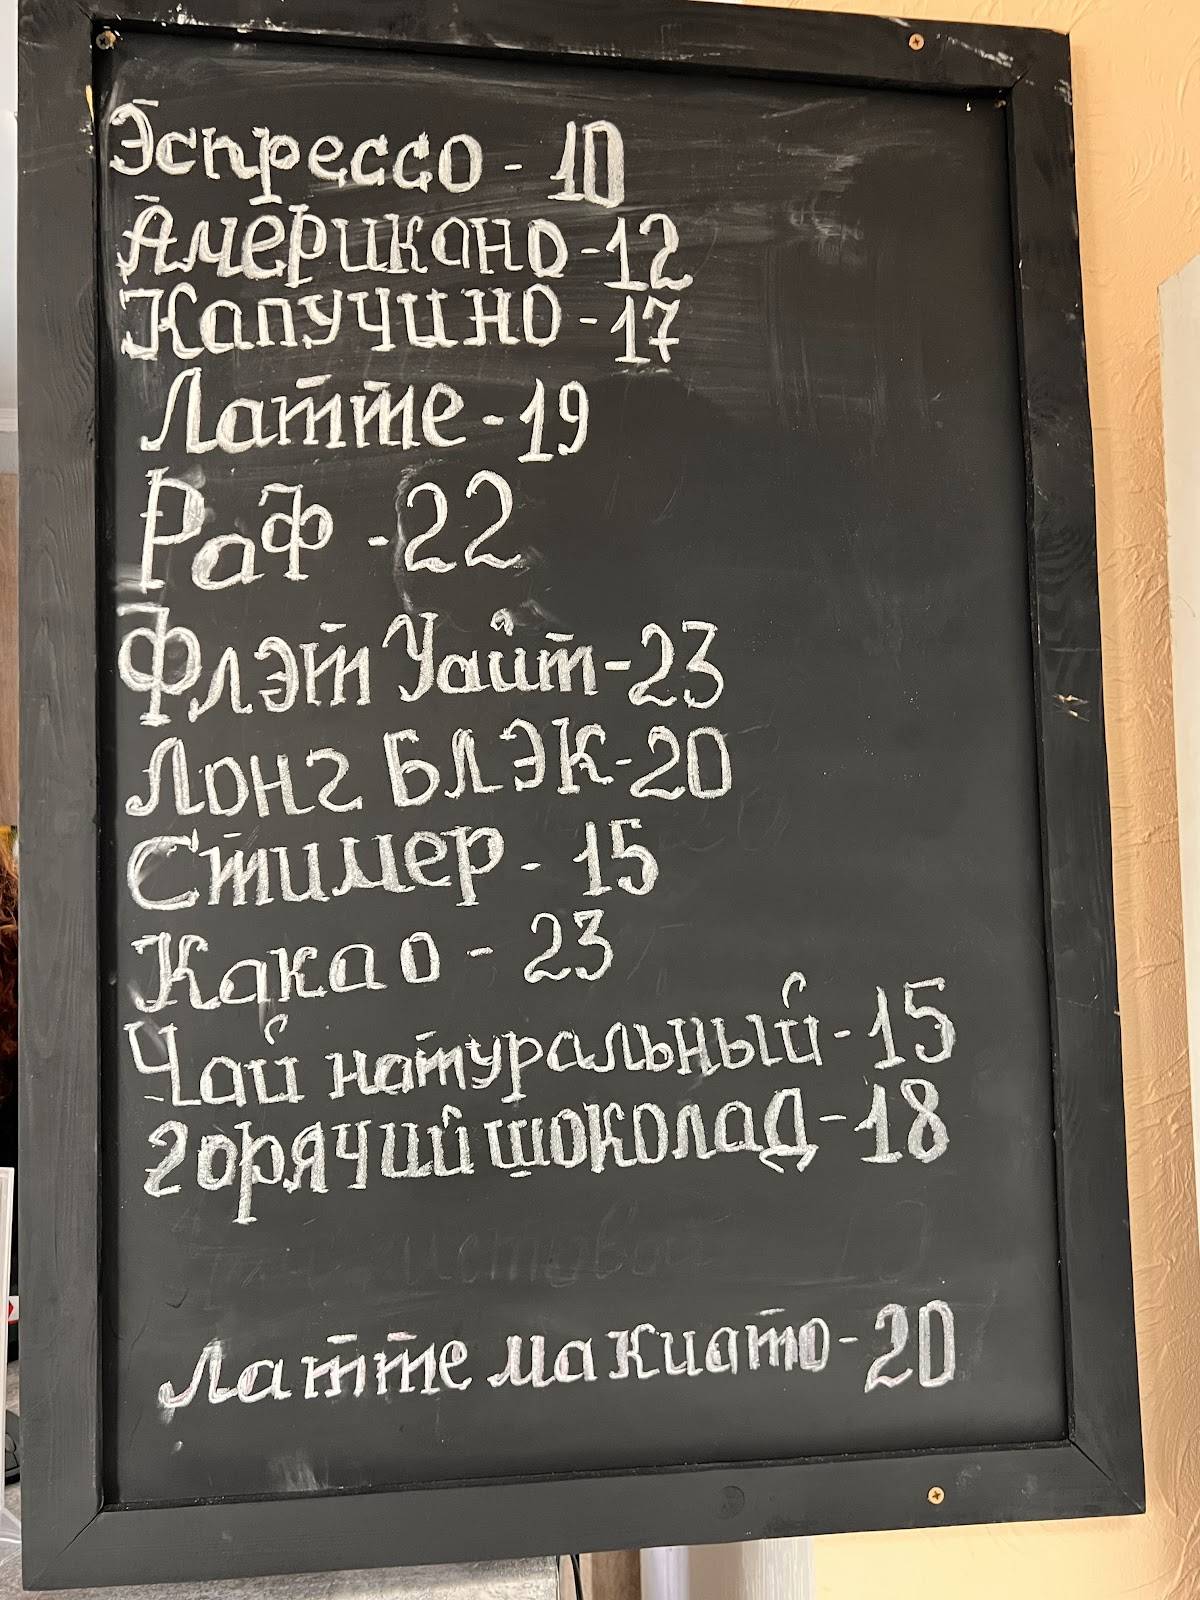 Эспрессо - 10
Американо - 12
Капучино - 17
Латте - 19
Раф - 22
Флэт Уайт - 23
Лонг БЛЭК - 20
Стимер - 15
Какао - 23
Чай натуральный - 15
горячий шоколад - 18
Латте макиато - 20